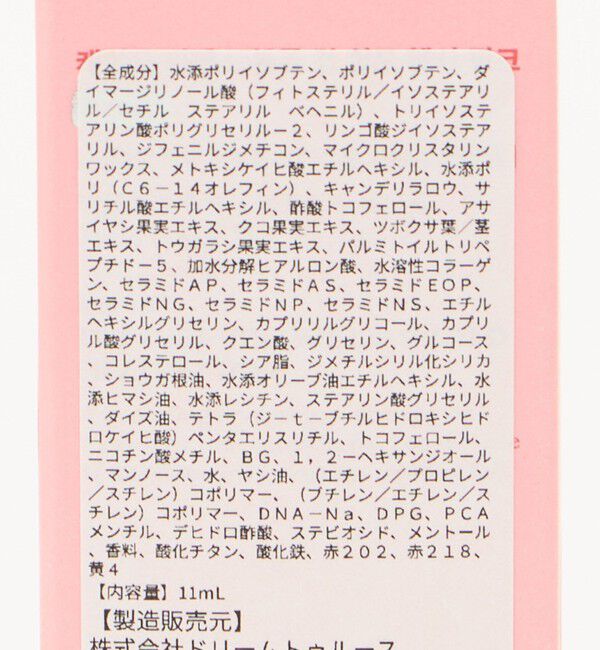 【全成分】水添ポリイソブテン、ポリイソブテン、ダ
イマージリノール酸（フィトステリル／イソステアリ
ル／セチル　ステアリル　ベヘニル）、トリイソステ
アリン酸ポリグリセリル－２、リンゴ酸ジイソステア
リル、ジフェニルジメチコン、マイクロクリスタリン
ワックス、メトキシケイヒ酸エチルヘキシル、水添ポ
リ（Ｃ６－１４オレフィン）、キャンデリラロウ、サ
リチル酸エチルヘキシル、酢酸トコフェロール、アサ
イヤシ果実エキス、クコ果実エキス、ツボクサ葉／茎
エキス、トウガラシ果実エキス、パルミトイルトリペ
プチドー５、加水分解ヒアルロン酸、水溶性コラーゲ
ン、セラミドＡＰ、セラミドＡＳ、セラミドＥＯＰ、
セラミドＮＧ、セラミドＮＰ、セラミドＮＳ、エチル
ヘキシルグリセリン、カプリリルグリコール、カプリ
ル酸グリセリル、クエン酸、グリセリン、グルコース
、コレステロール、シア脂、ジメチルシリル化シリカ
、ショウガ根油、水添オリーブ油エチルヘキシル、水
添ヒマシ油、水添レシチン、ステアリン酸グリセリル
、ダイズ油、テトラ（ジーｔーブチルヒドロキシヒド
ロケイヒ酸）ペンタエリスリチル、トコフェロール、
ニコチン酸メチル、ＢＧ、１，２－ヘキサンジオール
、マンノース、水、ヤシ油、（エチレン／プロピレン
／スチレン）コポリマー、（ブチレン／エチレン／ス
チレン）コポリマー、ＤＮＡ－Ｎａ、ＤＰＧ、ＰＣＡ
メンチル、デヒドロ酢酸、ステビオシド、メントール
、香料、酸化チタン、酸化鉄、赤２０２、赤２１８、
黄４
【内容量】11mL
【製造販売元】
株式会社ドリームトゥルース